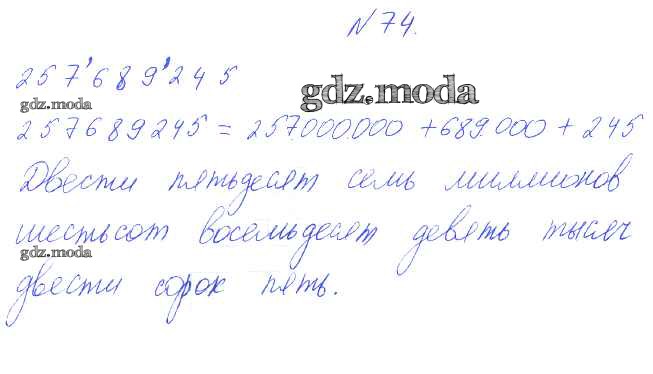 N 74.
257'689'245
gdz.moda
gdz.moda
257689245 = 257.000.000 + 689.000 + 245
Двести пятьдесят семь миллионов
шестьсот восемьдесят девять тысяч
gdz.moda
двести сорок пять.